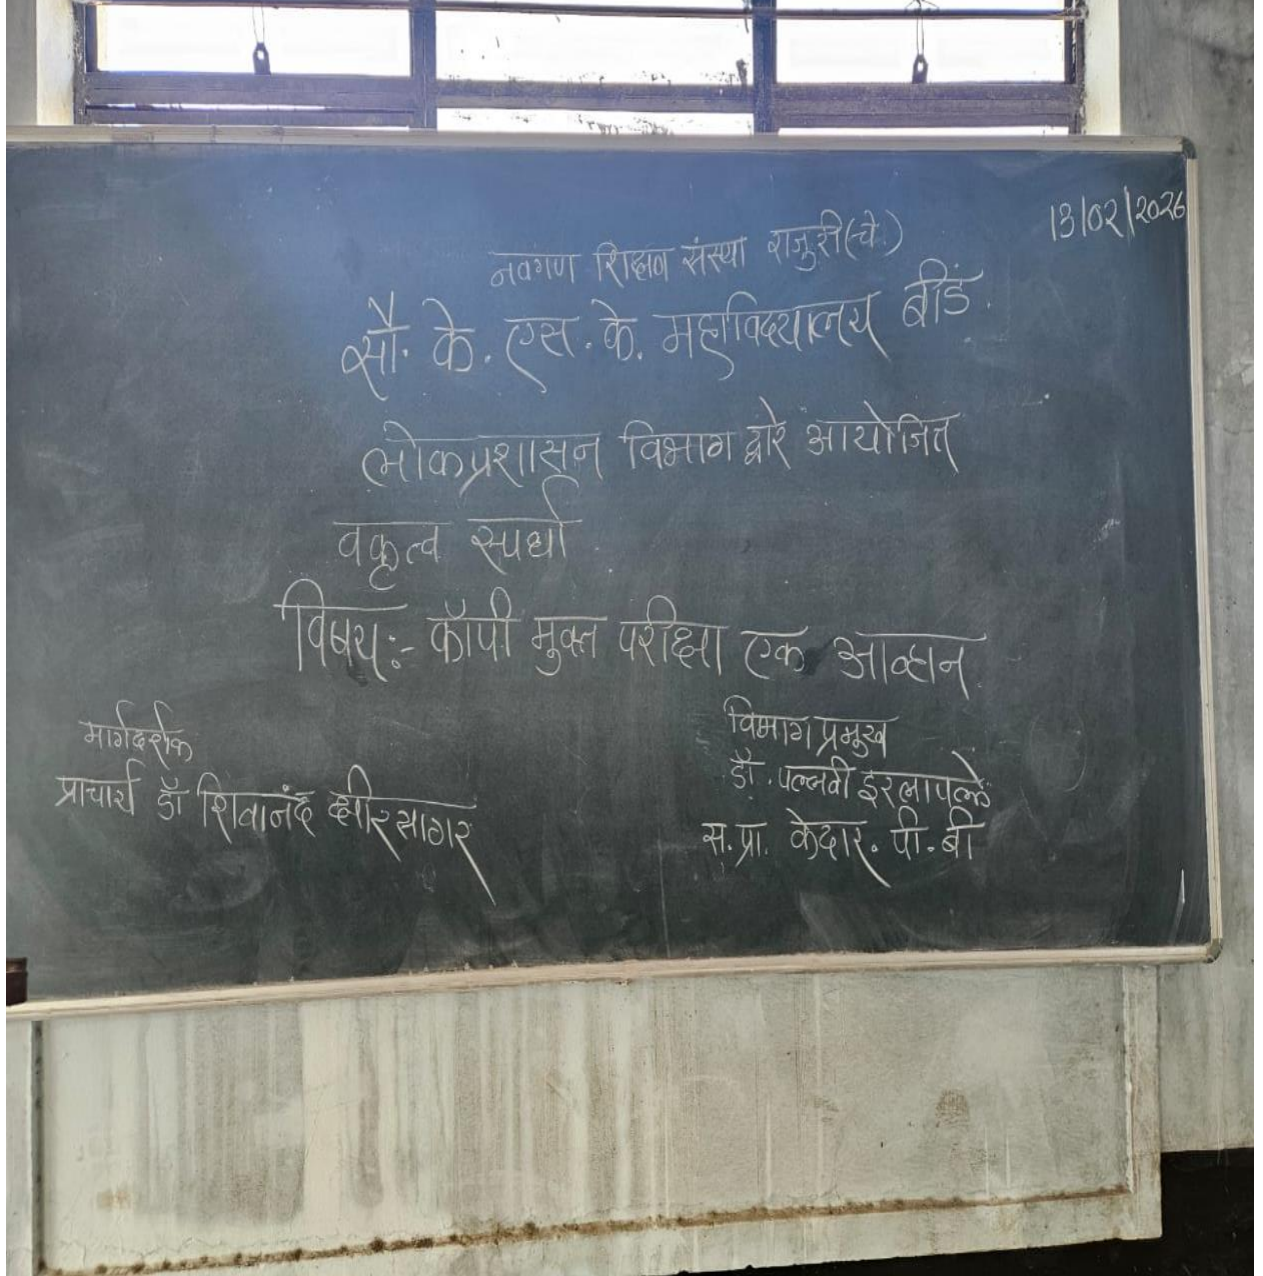 13/02/2026
नवगण शिक्षण संस्था राजुरी(चे)
सौ. के. एस. के. महाविदयालय बीड.
लोकप्रशासन विभाग द्वारे आयोजित
वकृत्व स्पर्धा
विषय:- कॉपी मुक्त परीक्षा एक आव्हान.
मार्गदर्शक
प्राचार्य डॉ शिवानंद क्षीरसागर
विभाग प्रमुख
डॉ. पल्लवी इरलापल्ले
स.प्रा. केदार. पी. बी